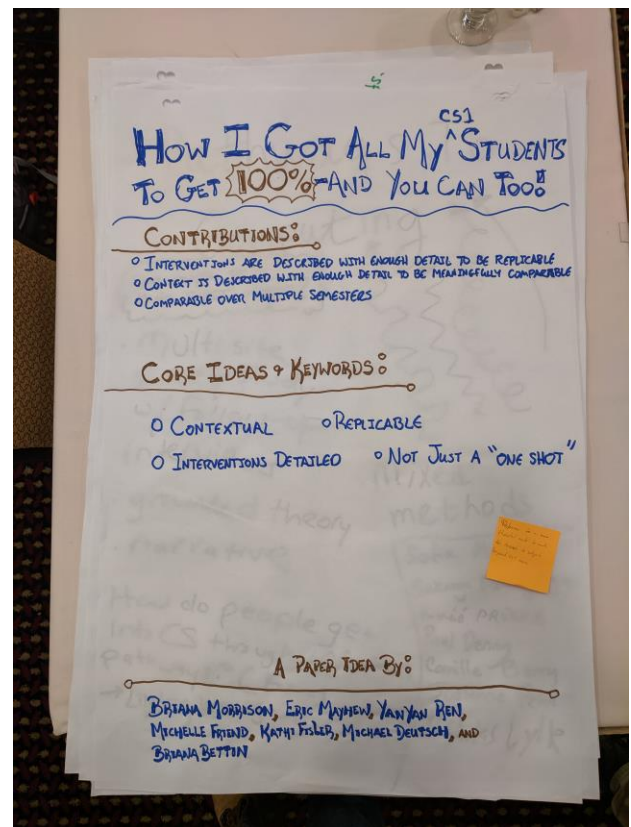 CS1
HOW I GOT ALL MY ^ STUDENTS
TO GET 100% - AND YOU CAN TOO!!
CONTRIBUTIONS:
○ INTERVENTIONS ARE DESCRIBED WITH ENOUGH DETAIL TO BE REPLICABLE
○ CONTEXT IS DESCRIBED WITH ENOUGH DETAIL TO BE MEANINGFULLY COMPARABLE
○ COMPARABLE OVER MULTIPLE SEMESTERS
CORE IDEAS & KEYWORDS:
○ CONTEXTUAL ○ REPLICABLE
○ INTERVENTIONS DETAILED ○ NOT JUST A "ONE SHOT"
grounded theory
methods
narrative
How do people get
into CS through
A PAPER IDEA BY:
BRIANA MORRISON, ERIC MAYHEW, YANYAN REN,
MICHELLE FRIEND, KATHI FISLER, MICHAEL DEUTSCH, AND
BRIANA BETTIN